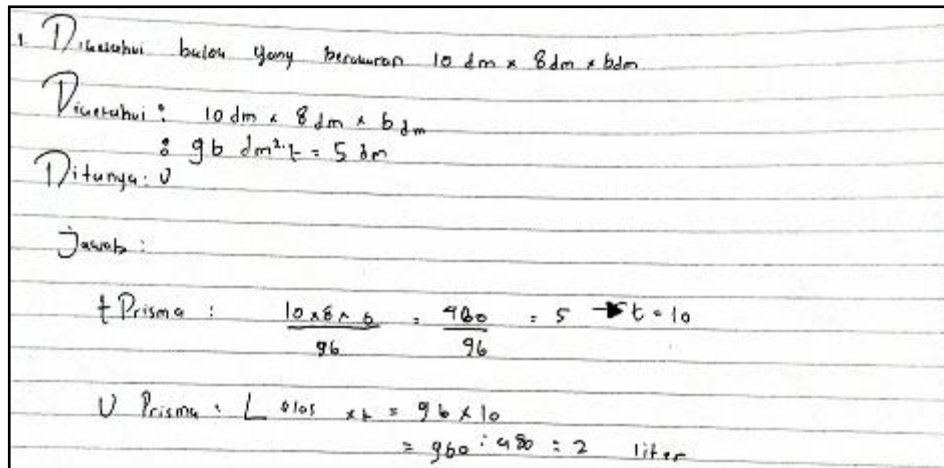 1. Diketahui balok yang berukuran 10 dm x 8 dm x 6 dm
Diketahui : 10 dm x 8 dm x 6 dm
: 96 dm². t = 5 dm
Ditanya : V
Jawab :
t Prisma : 10 x 8 x 6 / 96 = 480 / 96 = 5 → t = 10
V Prisma : L alas x t = 96 x 10
= 960 : 480 = 2 liter